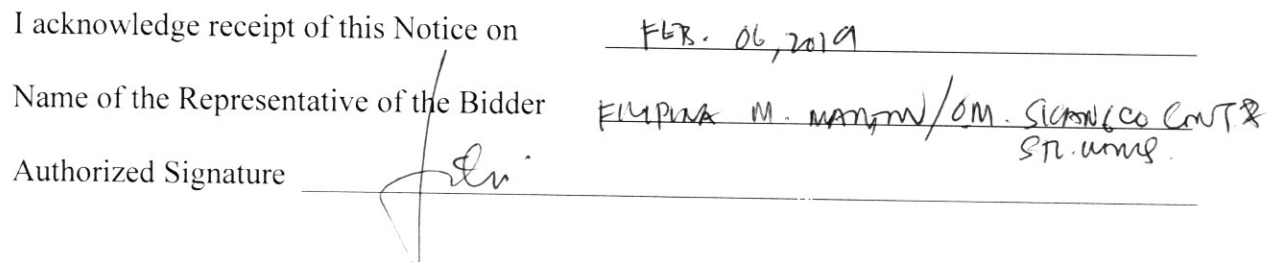 I acknowledge receipt of this Notice on FEB. 06, 2019
Name of the Representative of the Bidder FILIPINA M. / OM. CONT &
Authorized Signature